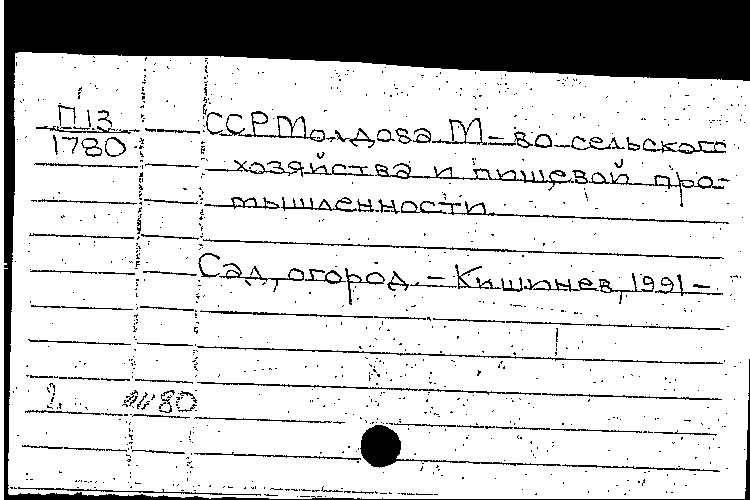 П13
1780
ССР Молдова М-во сельского
хозяйства и пищевой про-
мышленности.
Сад, огород. – Кишинев, 1991 –
80